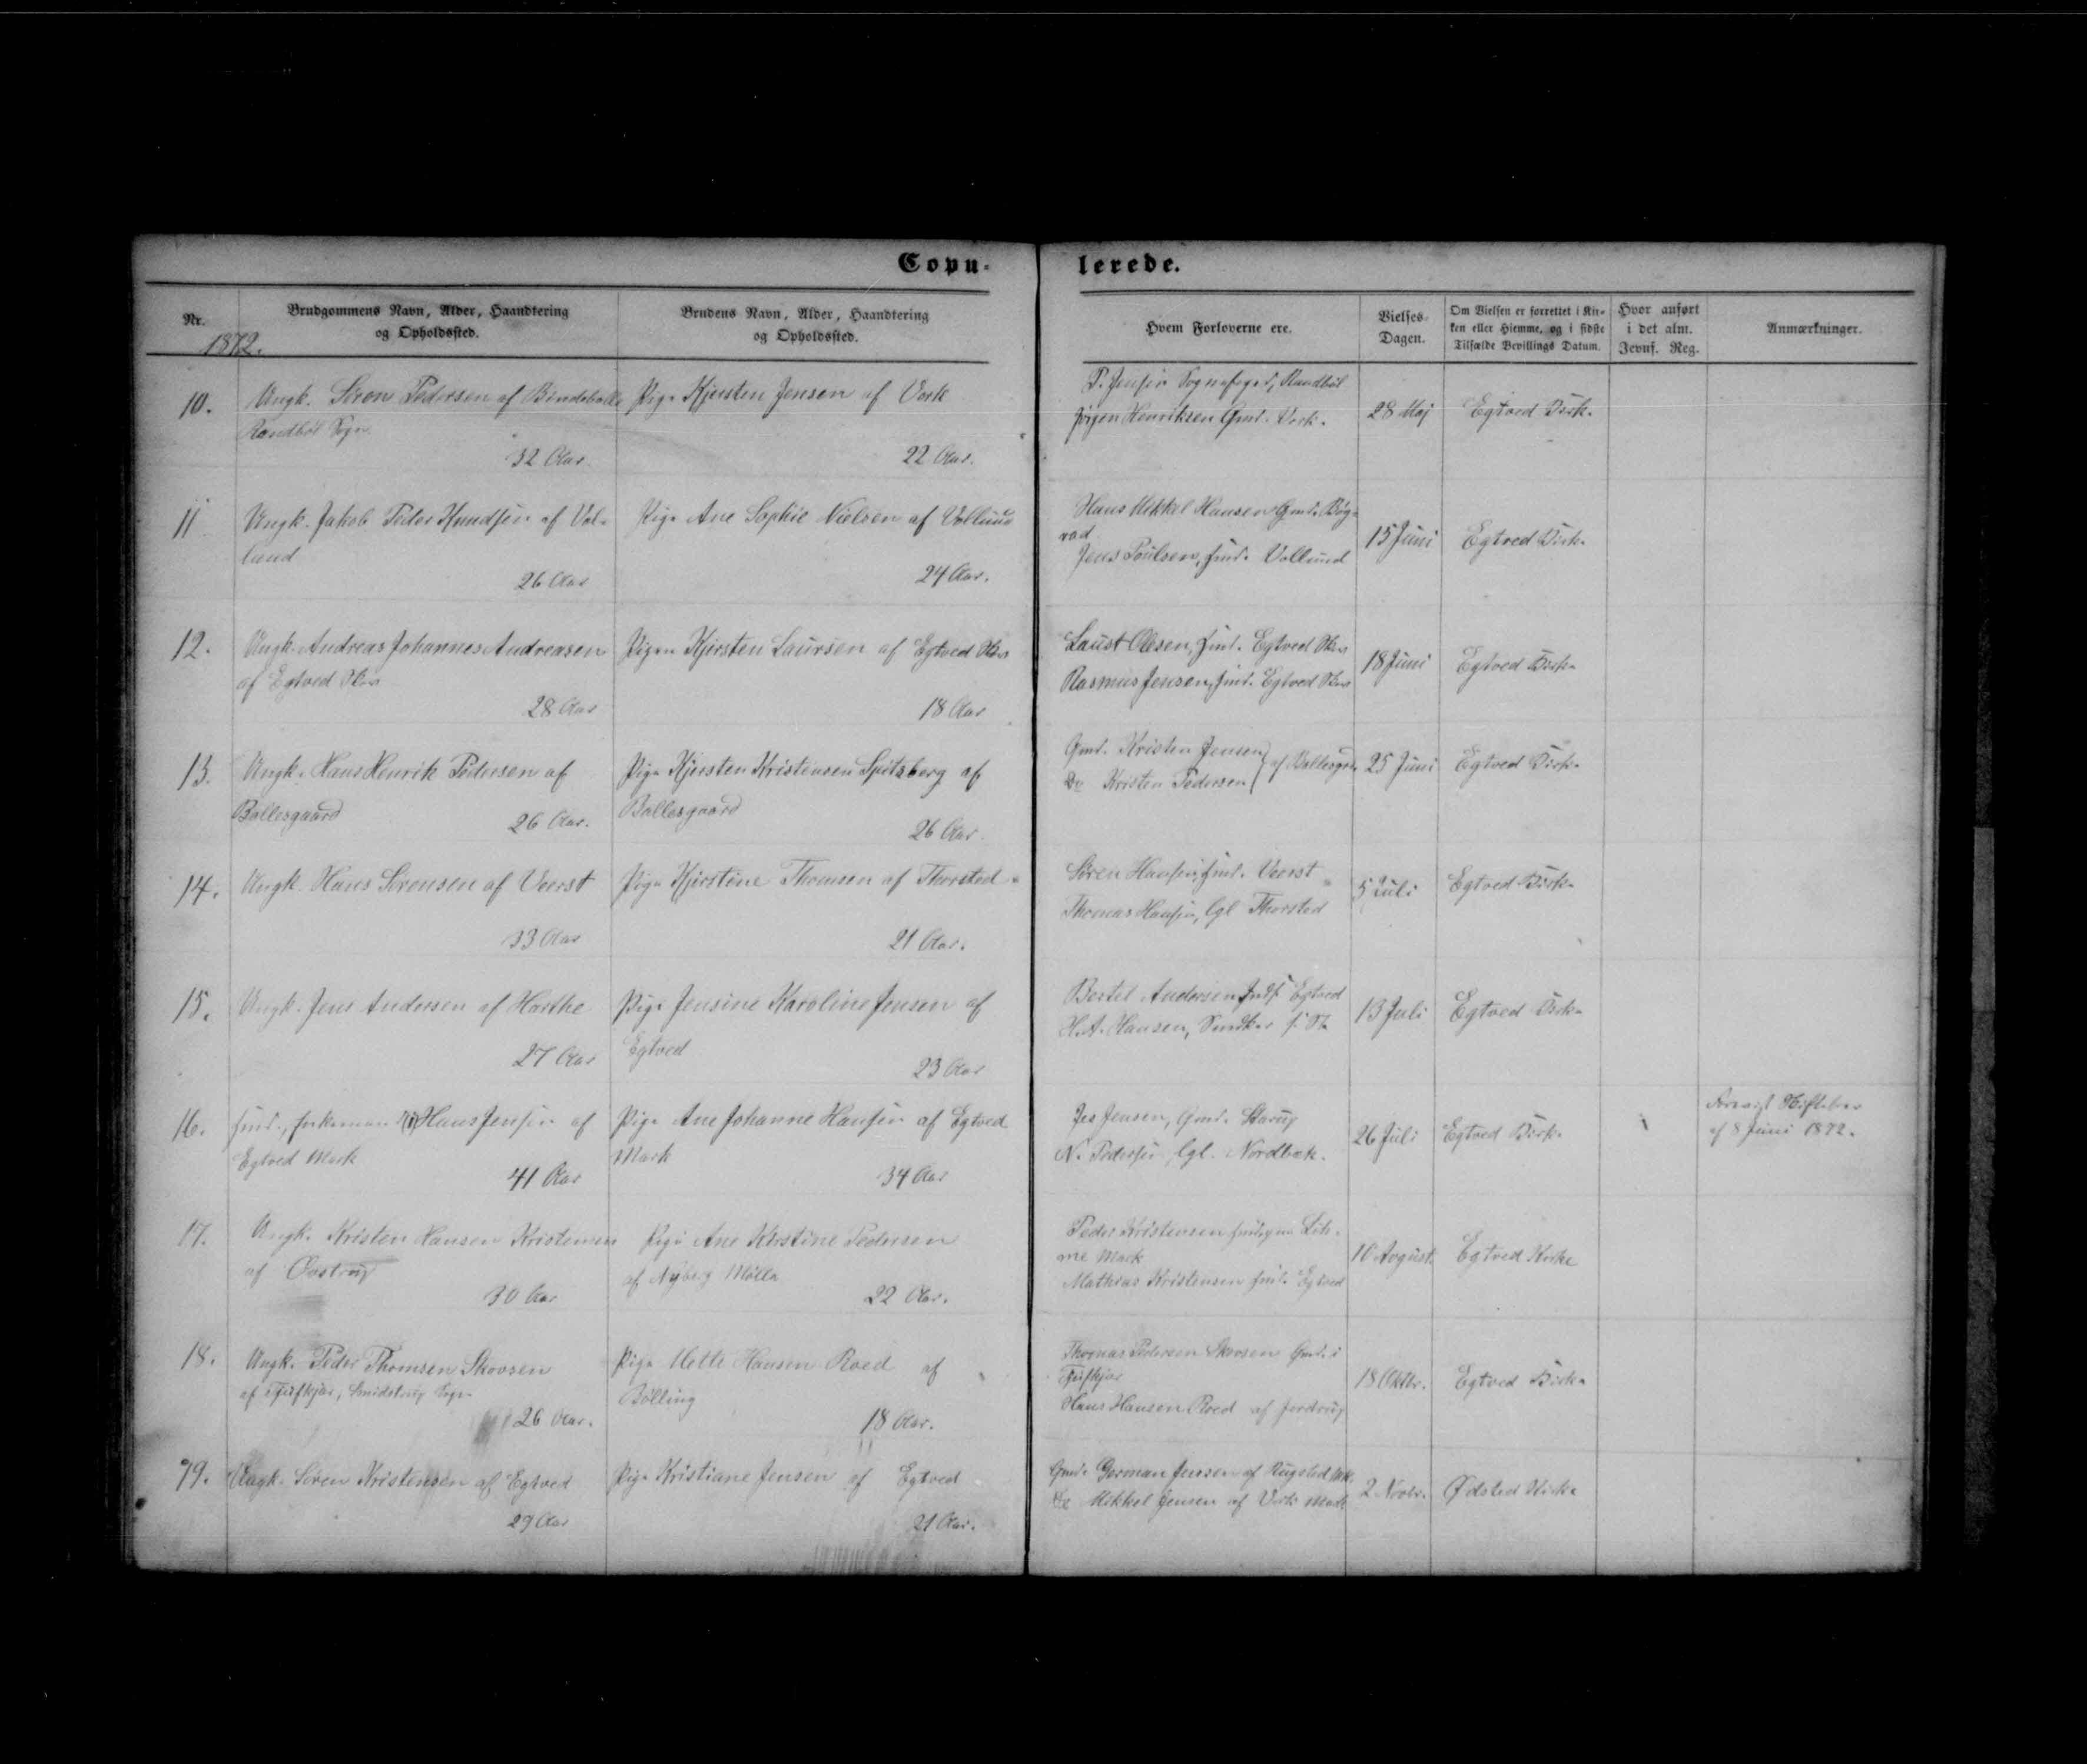 Copu-
lerede.
Nr.
1872.
Brudgommens Navn, Alder, Haandtering
og Opholdssted.
Brudens Navn, Alder, Haandtering
og Opholdssted.
Hvem Forloverne ere.
Vielses-
Dagen.
Om Vielsen er forrettet i Kir-
ken eller Hjemme, og i sidste
Tilfælde Bevillings Datum.
Hvor anført
i det alm.
Jevnf. Reg.
Anmærkninger.
10.
Ungk. Søren Pedersen af Bindeballe
Randbøl Sogn
32 Aar.
Pige Kjersten Jensen af Vork
22 Aar.
P. Jensen Sognefoged, Randbøl
Jørgen Henriksen Gmd. Vork.
28 Maj
Egtved Kirke
11
Ungk. Jakob Peder Knudsen af Vol-
lund
26 Aar
Pige Ane Sophie Nielsen af Vollund
24 Aar.
Hans Mikkel Hansen Gmd. Bøg-
vad
Jens Poulsen, Vollund
15 Juni
Egtved Kirke
12.
Ungk. Andreas Johannes Andreasen
af Egtved
28 Aar
Pigen Kjersten Laursen af Egtved
18 Aar
Laust Olesen, Egtved
Rasmus Jensen, Egtved
18 Juni
Egtved Kirke
13.
Ungk. Hans Henrik Pedersen af
Ballesgaard
26 Aar.
Pige Kjersten Kristensen Spitsberg af
Ballesgaard
26 Aar.
Gmd. Kristen Jensen
Do Kristen Pedersen
af Ballesgrd.
25 Juni
Egtved Kirke
14.
Ungk. Hans Sørensen af Veerst
33 Aar
Pige Kjerstine Thomsen af Thorsted
21 Aar.
Søren Hansen, Veerst
Thomas Hansen, Thorsted
5 Juli
Egtved Kirke
15.
Ungk. Jens Andersen af Horthe
27 Aar
Pige Jensine Karoline Jensen af
Egtved
23 Aar
Bertel Andersen Egtved
H. A. Hansen,
13 Juli
Egtved Kirke
16.
Hans Jensen af
Egtved Mark
41 Aar
Pige Ane Johanne Hansen af Egtved
Mark
34 Aar
Jes Jensen, Gmd. Starup
N. Pedersen, Nordbæk.
26 Juli
Egtved Kirke
af 8 Juni 1872.
17.
Ungk. Kristen Hansen Kristensen
af Oostrup
30 Aar
Pige Ane Kirstine Pedersen
af Nybjerg Mølle
22 Aar.
Peder Kristensen
Mark
Mathias Kristensen Egtved
10 August
Egtved Kirke
18.
Ungk. Peder Thomsen Skovsen
af Fuskjær, Smidstrup Sogn
26 Aar.
Pige Mette Hansen Roed af
Bølling
18 Aar.
Thomas Pedersen Skovsen Gmd. i
Hans Hansen Roed af Jordrup
18 Oktbr.
Egtved Kirke
19.
Ungk. Søren Kristensen af Egtved
29 Aar
Pige Kristiane Jensen af Egtved
21 Aar.
Gmd. Gorman Jensen af Rugsted
Do Mikkel Jensen af Vork Mark
2 Novbr.
Ødsted Kirke